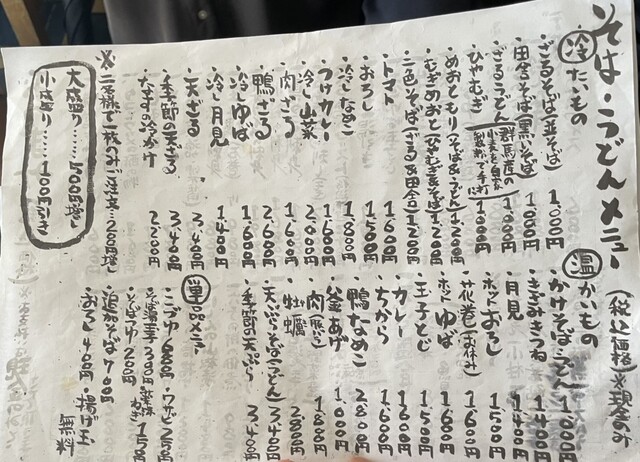 そば・うどんメニュー
(税込価格)※現金のみ
冷たいもの
・ざるそば(並そば) 1,000円
・田舎そば(黒いそば) 1,000円
・ざるうどん 1,000円
・ひやむぎ 1,000円
群馬産の
小麦を自家
製粉で手打
・めおともり(そば&うどん) 1,200円
・むぎめおと(ひやむぎ&そば) 1,200円
・二色そば(ざる&田舎) 1,200円
・トマト 1,600円
・おろし 1,500円
・冷しなめこ 1,800円
・つけカレー 1,600円
・冷し山菜 2,000円
・肉ざる 1,600円
・鴨ざる 2,600円
・冷しゆば 1,600円
・冷し月見 1,400円
・天ざる 3,400円
・季節の天ざる 3,400円
・なすの冷かけ 2,200円
※二名様で一枚のみご注文…200円増し
大盛り……500円増し
小盛り……100円引き
温かいもの
・かけそば(うどん) 1,000円
・きざみきつね 1,400円
・月見 1,400円
・ホットおろし 1,500円
・花巻(お休み) 1,600円
・ホットゆば 1,600円
・玉子とじ 1,500円
・カレー 1,600円
・ちから 1,600円
・鴨なめこ 2,800円
・釜あげ 1,000円
・肉(豚バラ) 1,800円
・牡蠣 2,800円
・天ぷらそば(うどん) 3,400円
・季節の天ぷら 3,400円
単品メニュー
・こづゆ 600円
・そば湯 200円
・追加そば 700円
・おろし 400円
・ワサビ 250円
・ねぎ 150円
・揚げ玉 無料